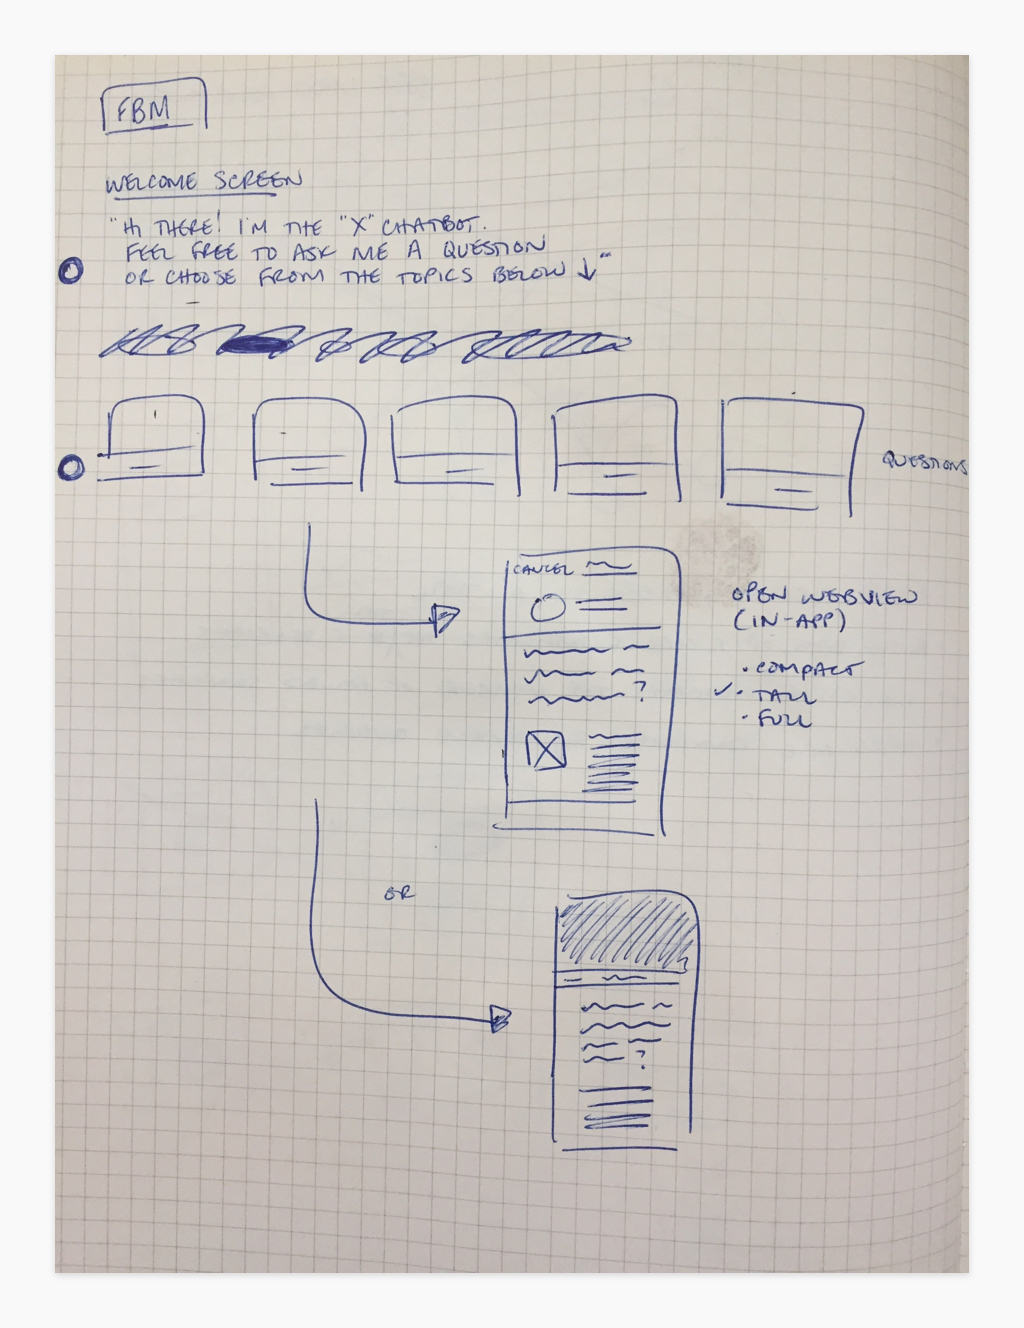 FBM
WELCOME SCREEN
"HI THERE! I'M THE "X" CHATBOT.
FEEL FREE TO ASK ME A QUESTION
OR CHOOSE FROM THE TOPICS BELOW ↓"
QUESTIONS
CANCEL
?
OPEN WEBVIEW
(IN-APP)
· COMPACT
✓ · TALL
· FULL
OR
?